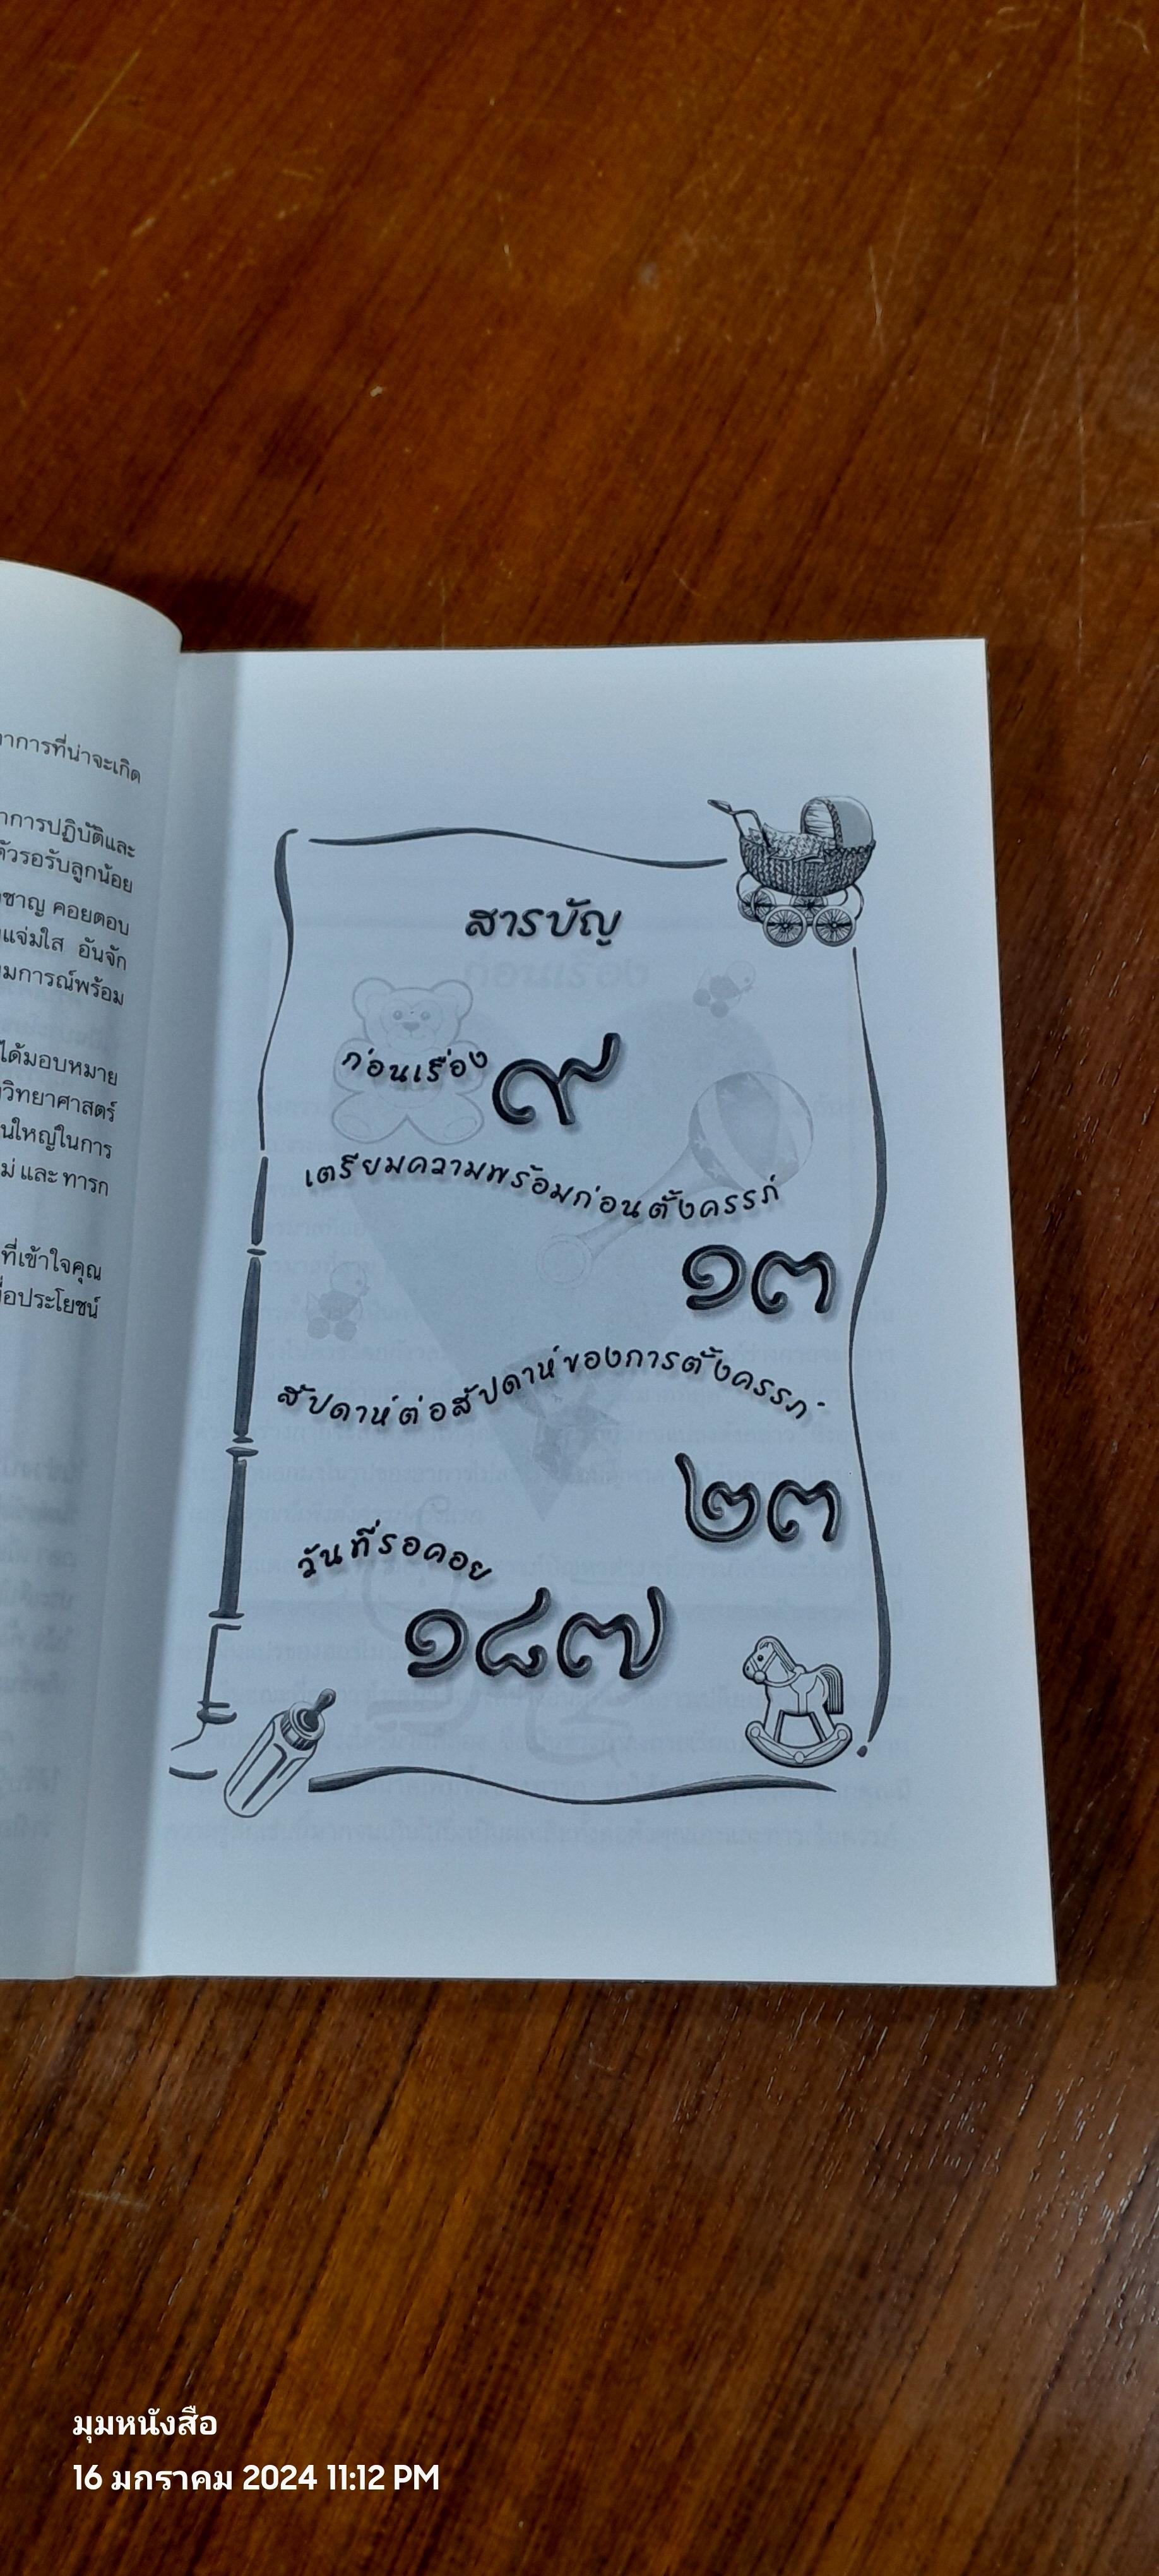 าการที่น่าจะเกิด
าการปฏิบัติและ
ตัวรอรับลูกน้อย
ชาญ คอยตอบ
แจ่มใส อันจัก
มการณ์พร้อม
ได้มอบหมาย
วิทยาศาสตร์
นใหญ่ในการ
ม่ และ ทารก
ที่เข้าใจคุณ
อประโยชน์
สารบัญ
ก่อนเรื่อง ๙
เตรียมความพร้อมก่อนตั้งครรภ์
๑๓
สัปดาห์ต่อสัปดาห์ของการตั้งครรภ์
๒๓
วันที่รอคอย
๑๘๗
มุมหนังสือ
16 มกราคม 2024 11:12 PM